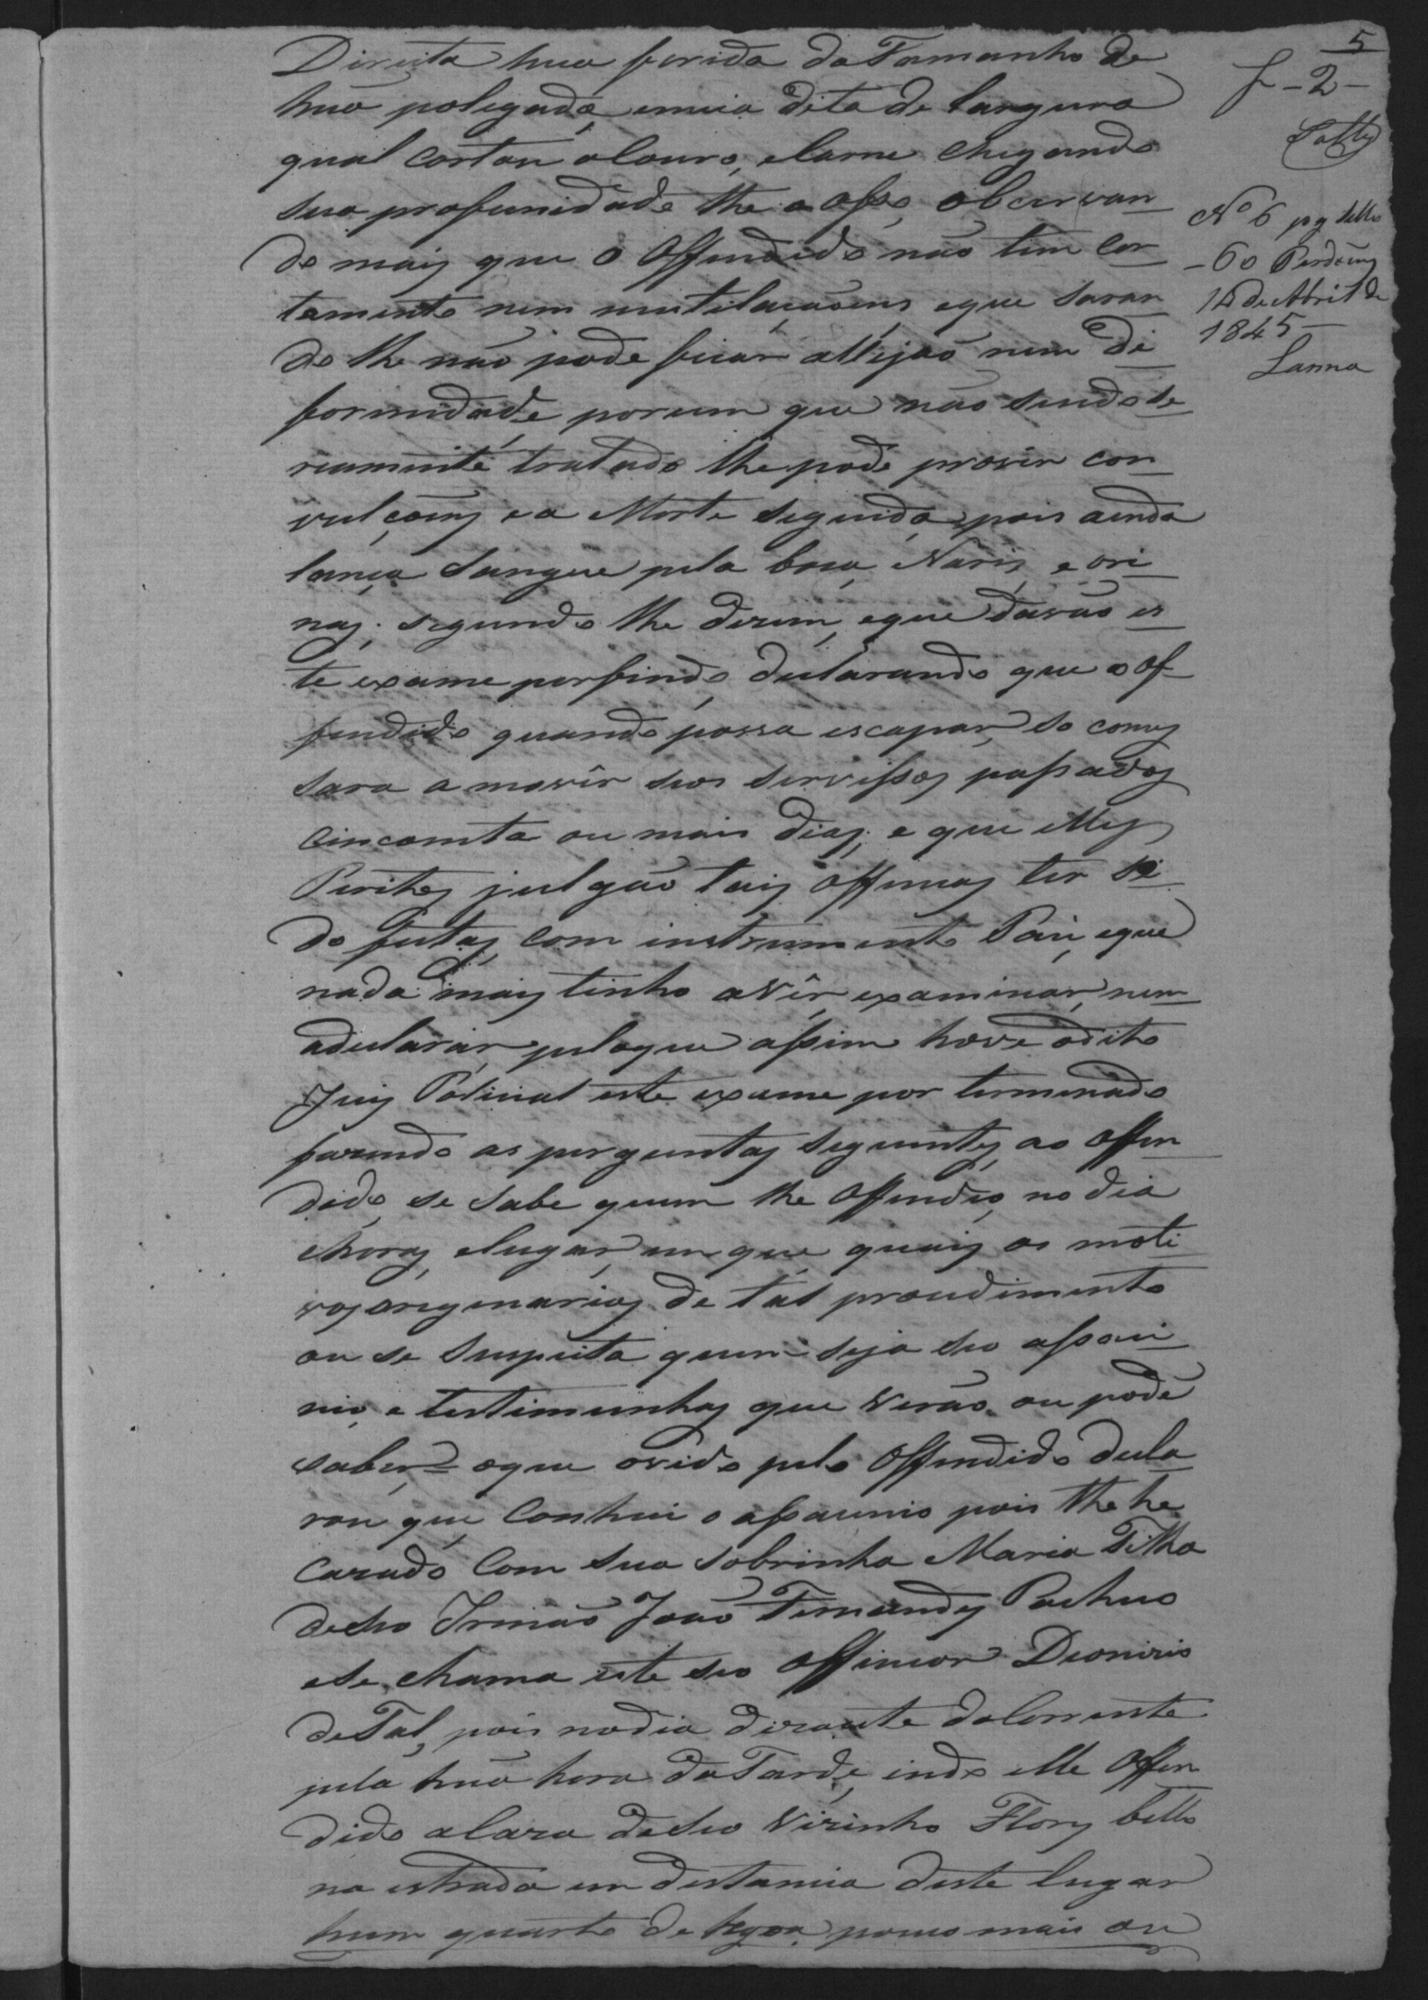 5
f - 2 -
Nº 6 pg sello
- 60 Perdões
14 de Abril de
1845 -
Lanna
Direita hua ferida do Tamanho de
hua polegada, emeia dita de largura
qual cortou o Couro, eCarne chegando
sua profunidade the o osso, observan
do mais que o Offendido não tem cor
tamento nem mutilaçaõens eque saran
do the não pode ficar alleijaõ nem de
formidade, porem que não sendo se
riamente tratado lhe pode provir con
vulçoens, e a Morte seguida, pois ainda
lança Sangue pela boca, Naris, e ori
nas, segundo lhe dizem, eque davaõ es
te exame por findo, declarando que o of
fendido quando possa escapar, so comes
sara a movêr seos servissos passados
cincoenta ou mais dias; e que elles
Peritos julgaõ tais offenças ter si
do feitas, com instrumento Páu, eque
nada mais tinhõ avêr, examinar, nem
adeclarar, peloque assim hove odito
Juis Policial este exame por terminado
fazendo as perguntas seguintes, ao Offen
dido, se sabe quem lhe Offendeo, no dia
ehoras, elugar, em que, quais os moti
vos origenarios de tal procedimento
ou se suspeita quem seja seo assaci
nio, e testimunhas que viraõ, ou pode
saber = oque ovido pelo Offendido decla
rou que Conheci o assacinio pois lhe he
Cazado Com sua sobrinha Maria Filha
deSeo Irmaõ Joaõ Fernandes Pacheco
eSe chama este seo Offençor Dionizio
deTal, pois nodia dezoute doCorrente
pela hua hora daTarde, indo elle Offen
dido aCaza deSeo Vizinho Flory bello
na estrada em distancia deste lugar
hum quarto de legoa, pouco mais ou